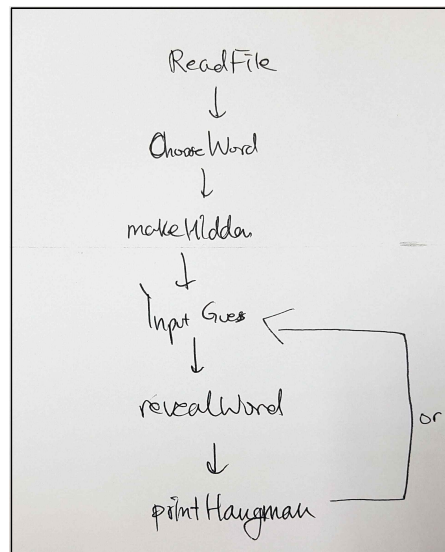 ReadFile
ChooseWord
makeHidden
Input Guess
revealWord
or
printHangman